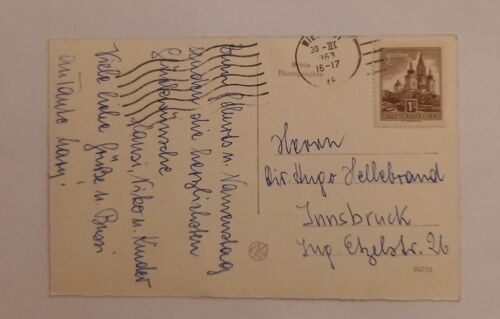 Zum Geburts u. Namenstag
senden die herzlichsten
Glückwünsche
Hansi, Niko u. Kinder
Viele liebe Grüße u. Bussi
an Tante Mary!
WIE
30-III
963
16-17
Echte
Photographie
1S
REPUBLIK ÖSTERREICH
Herrn
Dir. Hugo Hellebrand
Innsbruck
Ing. Etzelstr. 26